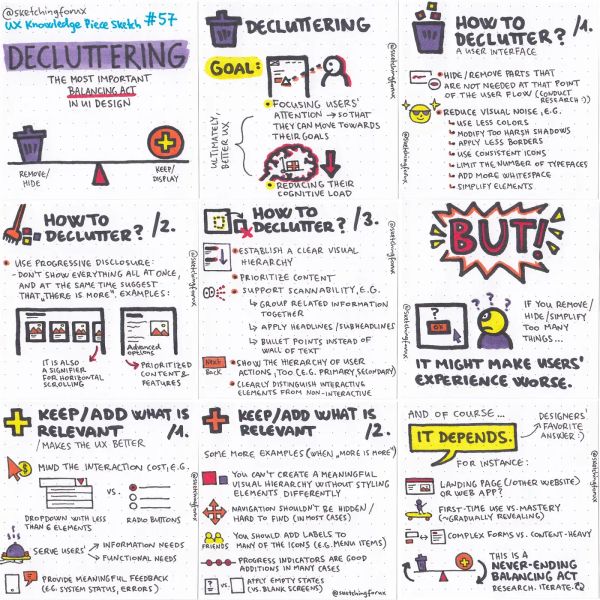 @sketchingforux
UX Knowledge Piece Sketch #57
DECLUTTERING
THE MOST IMPORTANT
BALANCING ACT
IN UI DESIGN
REMOVE/
HIDE
KEEP/
DISPLAY
DECLUTTERING
GOAL:
FOCUSING USERS'
ATTENTION → SO THAT
THEY CAN MOVE TOWARDS
THEIR GOALS
ULTIMATELY,
BETTER UX
REDUCING THEIR
COGNITIVE LOAD
@sketchingforux
HOW TO
DECLUTTER? /1.
A USER INTERFACE
HIDE/REMOVE PARTS THAT
ARE NOT NEEDED AT THAT POINT
OF THE USER FLOW (CONDUCT
RESEARCH :))
REDUCE VISUAL NOISE, E.G.
USE LESS COLORS
MODIFY TOO HARSH SHADOWS
APPLY LESS BORDERS
USE CONSISTENT ICONS
LIMIT THE NUMBER OF TYPEFACES
ADD MORE WHITESPACE
SIMPLIFY ELEMENTS
@sketchingforux
HOW TO
DECLUTTER? /2.
USE PROGRESSIVE DISCLOSURE:
- DON'T SHOW EVERYTHING ALL AT ONCE,
AND AT THE SAME TIME SUGGEST
THAT „THERE IS MORE". EXAMPLES:
Advanced
options
IT IS ALSO
A SIGNIFIER
FOR HORIZONTAL
SCROLLING
PRIORITIZED
CONTENT &
FEATURES
HOW TO
DECLUTTER? /3.
ESTABLISH A CLEAR VISUAL
HIERARCHY
PRIORITIZE CONTENT
SUPPORT SCANNABILITY, E.G.
GROUP RELATED INFORMATION
TOGETHER
APPLY HEADLINES/SUBHEADLINES
BULLET POINTS INSTEAD OF
WALL OF TEXT
Next
Back
SHOW THE HIERARCHY OF USER
ACTIONS, TOO (E.G. PRIMARY, SECONDARY)
CLEARLY DISTINGUISH INTERACTIVE
ELEMENTS FROM NON-INTERACTIVE
@sketchingforux
BUT!
? ? ?
OK
IF YOU REMOVE/
HIDE/SIMPLIFY
TOO MANY
THINGS...
IT MIGHT MAKE USERS'
EXPERIENCE WORSE.
@sketchingforux
KEEP/ADD WHAT IS
RELEVANT /1.
/MAKES THE UX BETTER
MIND THE INTERACTION COST, E.G.
VS.
DROPDOWN WITH LESS
THAN 6 ELEMENTS
RADIO BUTTONS
SERVE USERS'
INFORMATION NEEDS
FUNCTIONAL NEEDS
PROVIDE MEANINGFUL FEEDBACK
(E.G. SYSTEM STATUS, ERRORS)
@sketchingforux
KEEP/ADD WHAT IS
RELEVANT /2.
SOME MORE EXAMPLES (WHEN „MORE IS MORE")
YOU CAN'T CREATE A MEANINGFUL
VISUAL HIERARCHY WITHOUT STYLING
ELEMENTS DIFFERENTLY
NAVIGATION SHOULDN'T BE HIDDEN/
HARD TO FIND (IN MOST CASES)
FRIENDS
YOU SHOULD ADD LABELS TO
MANY OF THE ICONS (E.G. MENU ITEMS)
PROGRESS INDICATORS ARE GOOD
ADDITIONS IN MANY CASES
? VS.
APPLY EMPTY STATES
(VS. BLANK SCREENS)
@sketchingforux
AND OF COURSE...
IT DEPENDS.
DESIGNERS'
FAVORITE
ANSWER :)
FOR INSTANCE:
LANDING PAGE (/OTHER WEBSITE)
OR WEB APP?
FIRST-TIME USE VS. MASTERY
(~GRADUALLY REVEALING)
COMPLEX FORMS VS. CONTENT-HEAVY
THIS IS A
NEVER-ENDING
BALANCING ACT
RESEARCH. ITERATE.
@sketchingforux